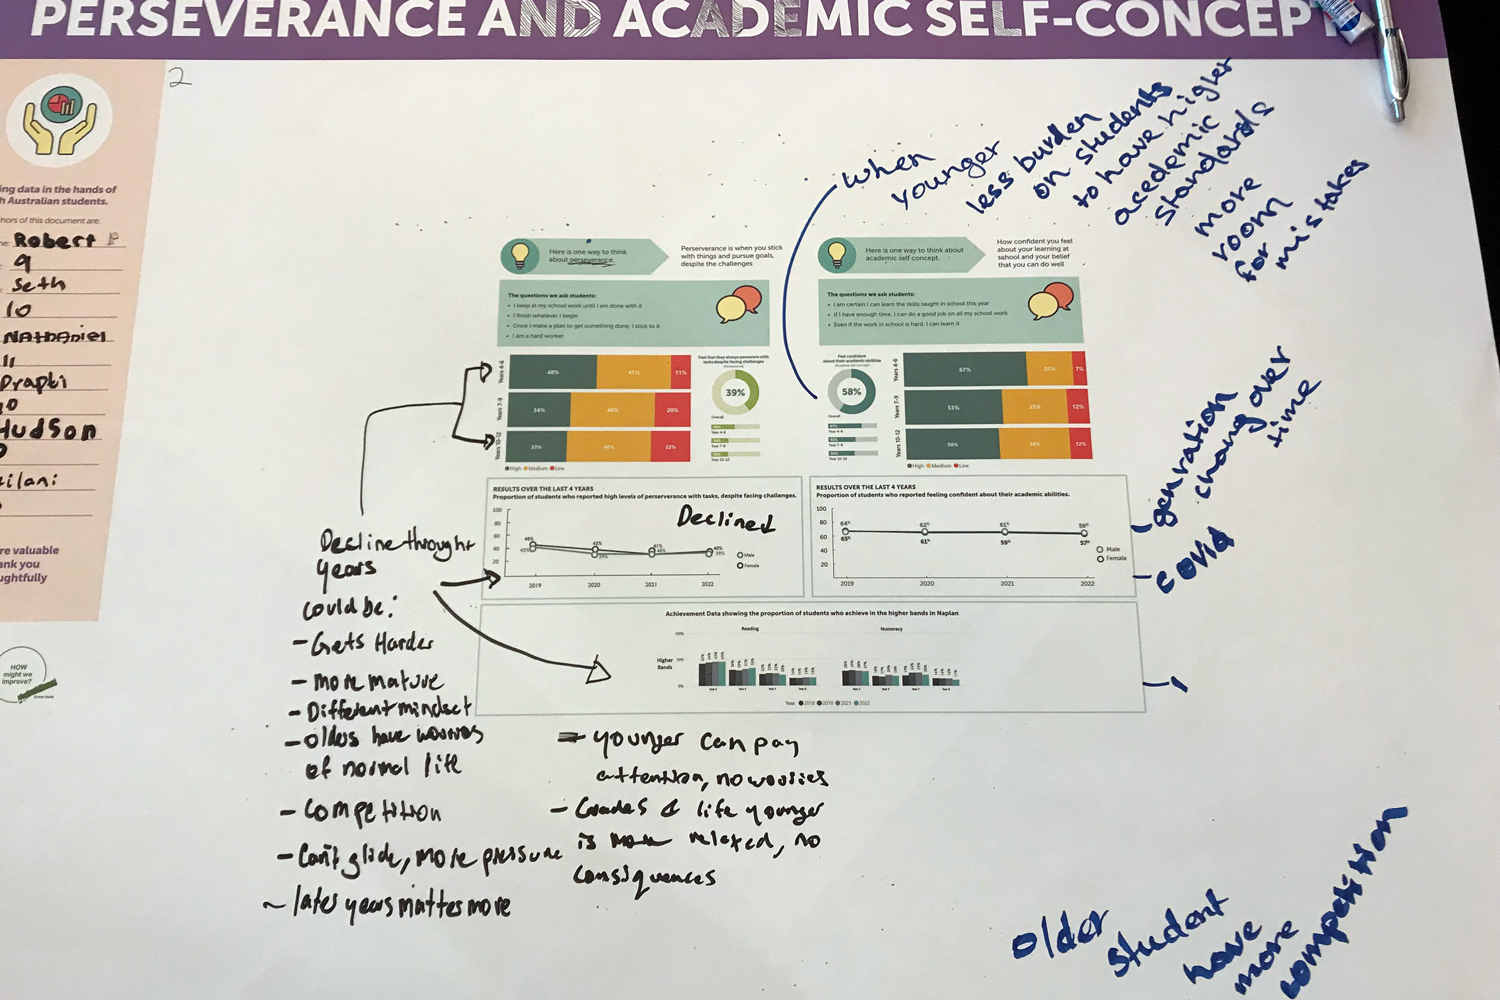 PERSEVERANCE AND ACADEMIC SELF-CONCEPT
2
ing data in the hands of
Australian students.
hors of this document are:
Robert P
9
Seth
10
NATHANIEL
11
Prapti
10
Hudson
eilani
re valuable
ank you
ughtfully
HOW
might we
improve?
When
younger
less burden
on students
to have higher
acedemic
standards
more
room
for mistakes
Here is one way to think
about perseverance.
Perserverance is when you stick
with things and pursue goals,
despite the challenges
The questions we ask students:
• I keep at my school work until I am done with it
• I finish whatever I begin
• Once I make a plan to get something done, I stick to it
• I am a hard worker
Here is one way to think about
academic self concept.
How confident you feel
about your learning at
school and your belief
that you can do well
The questions we ask students:
• I am certain I can learn the skills taught in school this year
• If I have enough time, I can do a good job on all my school work
• Even if the work in school is hard, I can learn it
Years 4-6
48%
41%
11%
Years 7-9
34%
46%
20%
Years 10-12
46%
22%
High Medium Low
Feel that they always persevere with
tasks despite facing challenges
39%
Overall
Year 4-6
Year 7-9
Year 10-12
Feel confident
about their academic abilities
58%
Overall
Year 4-6
Year 7-9
Year 10-12
Years 4-6
67%
25%
7%
Years 7-9
53%
35%
12%
Years 10-12
50%
38%
12%
High Medium Low
RESULTS OVER THE LAST 4 YEARS
Proportion of students who reported high levels of perserverance with tasks, despite facing challenges.
Declined
100
80
60
40
20
2019
2020
2021
2022
Male
Female
RESULTS OVER THE LAST 4 YEARS
Proportion of students who reported feeling confident about their academic abilities.
100
80
60
40
20
64%
62%
61%
59%
65%
61%
59%
57%
2019
2020
2021
2022
Male
Female
genration
chang over
time
covid
Achievement Data showing the proportion of students who achieve in the higher bands in Naplan
Reading
Numeracy
Higher
Bands
Year 2018 2019 2021 2022
Decline throught
years
could be:
- Gets Harder
- more mature
- Different mindset
- olders have worries
of normal life
- competition
- Can't glide, more pressure
~ later years matters more
- younger can pay
attention, no worries
- Grades & life younger
is more relaxed, no
consiquences
older
student
have
more
competition